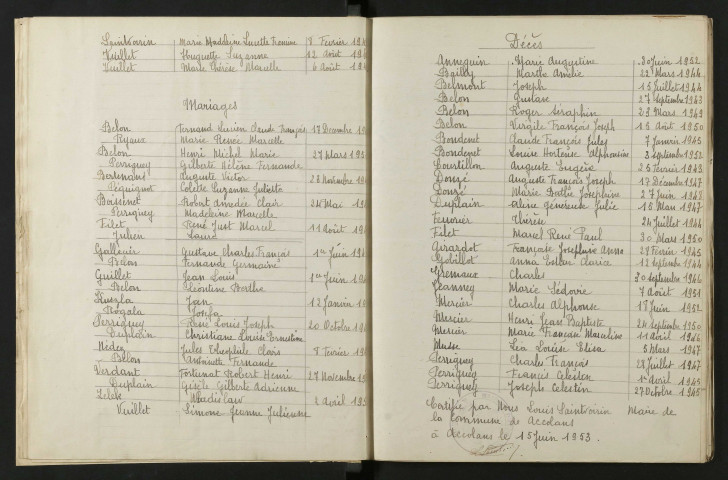 Saintvoirin Marie Madeleine Lucette Fernine 8 Février 194
Vuillet Huguette Suzanne 12 Août 19
Vuillet Marie Thérèse Marcelle 6 Août 19
Mariages
Belon Fernand Lucien Claude François 17 Décembre 19
Marie Renée Marcelle
Belon Henri Michel Marie 27 Mars 19
Perriguey Gilberte Hélène Fernande
Auguste Victor 28 Novembre 19
Péquignot Colette Suzanne Julietta
Boissenet Robert Amédée Clair 24 Mai 19
Perriguey Madeleine Marcelle
Filet René Just Marcel 11 Août 19
Julien Laure
Gustave Charles François 1er Juin 19
Belon Fernande Germaine
Guillet Jean Louis 1er Juin 19
Belon Léontine Berthe
Kuszla Jan 12 Janvier 19
Rogala Josefa
Perriguey René Louis Joseph 20 Octobre 19
Duplain Christiane Louise Ernestine
Jules Théophile Clovis 8 Février 19
Belon Antoinette Fernande
Verdant Fortunat Robert Henri 27 Novembre 19
Duplain Gisèle Gilberte Adrienne
Wladislaw 2 Avril 19
Vuillet Simone Jeanne Julienne
Décès
Annequin Marie Augustine 30 Juin 1952
Bailly Marthe Amélie 22 Mars 1944
Belmont Joseph 15 Juillet 1944
Belon Gustave 27 Septembre 1943
Belon Roger Séraphin 23 Mars 1949
Belon Virgile François Joseph 15 Août 1950
Bondenet Claude François Jules 7 Janvier 1945
Bondenet Louise Hortense Alphonsine 3 Septembre 1952
Auguste Eugène 25 Février 1948
Donzé Auguste François Joseph 17 Décembre 1947
Donzé Marie Joséphine 27 Juin 1948
Duplain Aline Généreuse Julie 15 Mai 1947
Thérèse 24 Juillet 1944
Filet Marcel René Paul 30 Mars 1950
Girardot Françoise Joséphine Anna 27 Février 1945
Gobillot Anna Clarice 18 Septembre 1944
Gremaux Charles 30 Septembre 1946
Jeanney Marie Sédovie 7 Août 1951
Mercier Charles Alphonse 18 Juin 1952
Mercier Henri Jean Baptiste 24 Septembre 1950
Mercier Marie Françoise 11 Avril 1946
Musse Léa Louise Elisa 5 Mars 1947
Perriguey Charles François 28 Juillet 1947
Perriguey Francis Célestin 1er Avril 1945
Perriguey Joseph Célestin 27 Octobre 1945
Certifié par Nous Louis Saintvoirin Maire de
la Commune de Accolans
à Accolans le 15 Juin 1953.